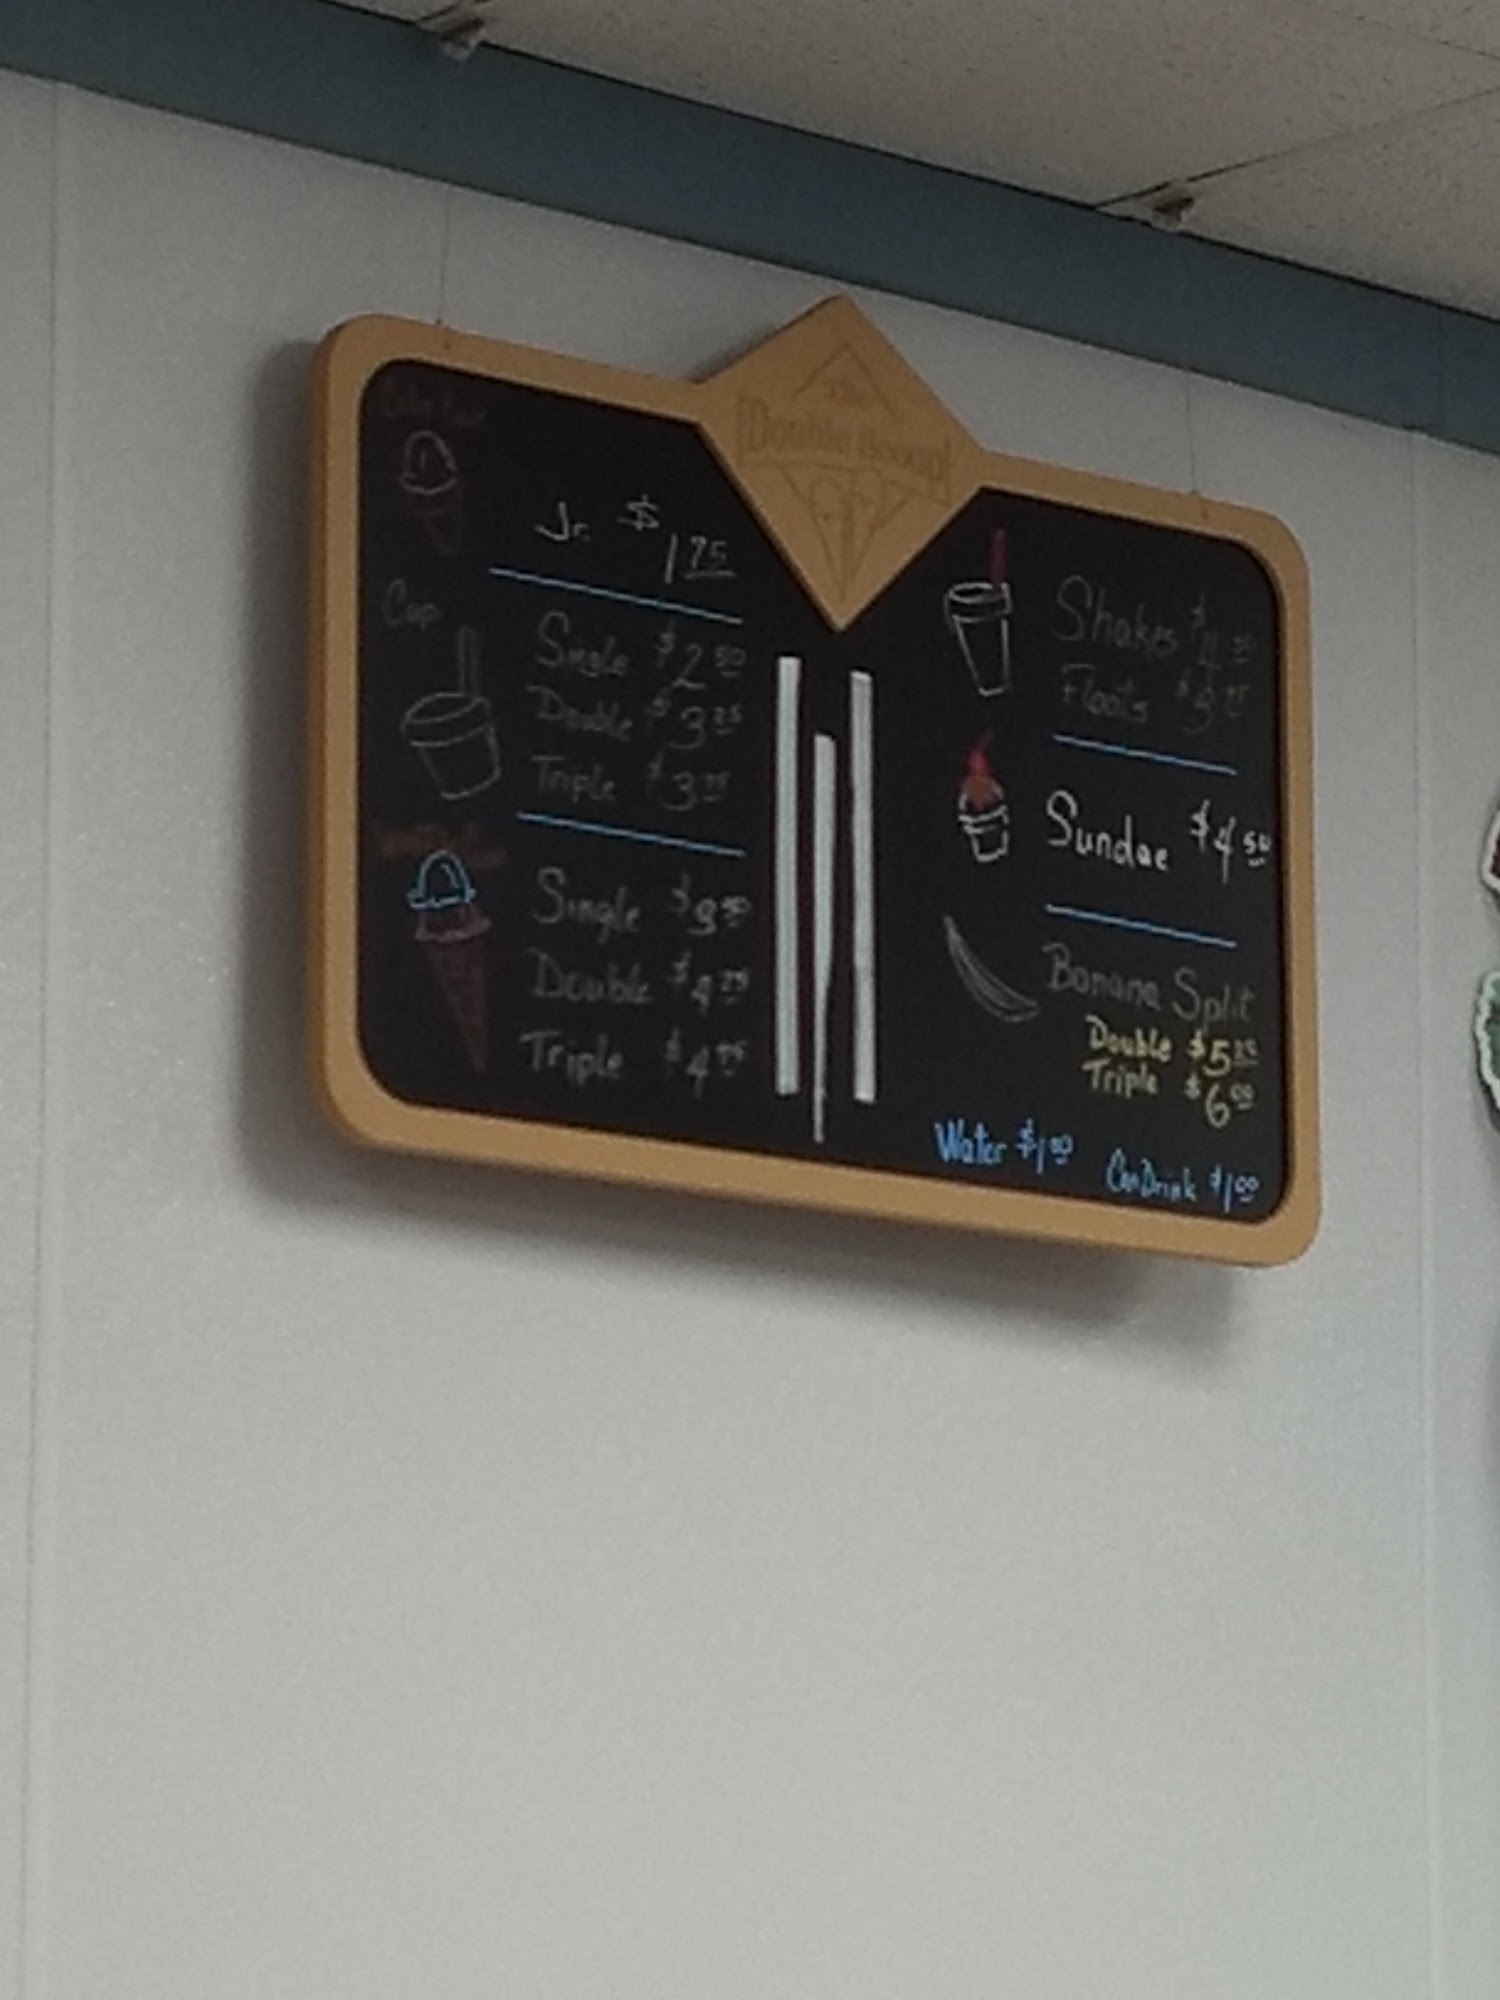 The
Double Scoop
Jr. $1.75
Cup
Single $2.50
Double $3.25
Triple $3.75
Single $3.50
Double $4.25
Triple $4.75
Shakes $4.50
Floats
Sundae $4.50
Banana Split
Double $5.25
Triple $6.00
Water $1.00
Can Drink $1.00